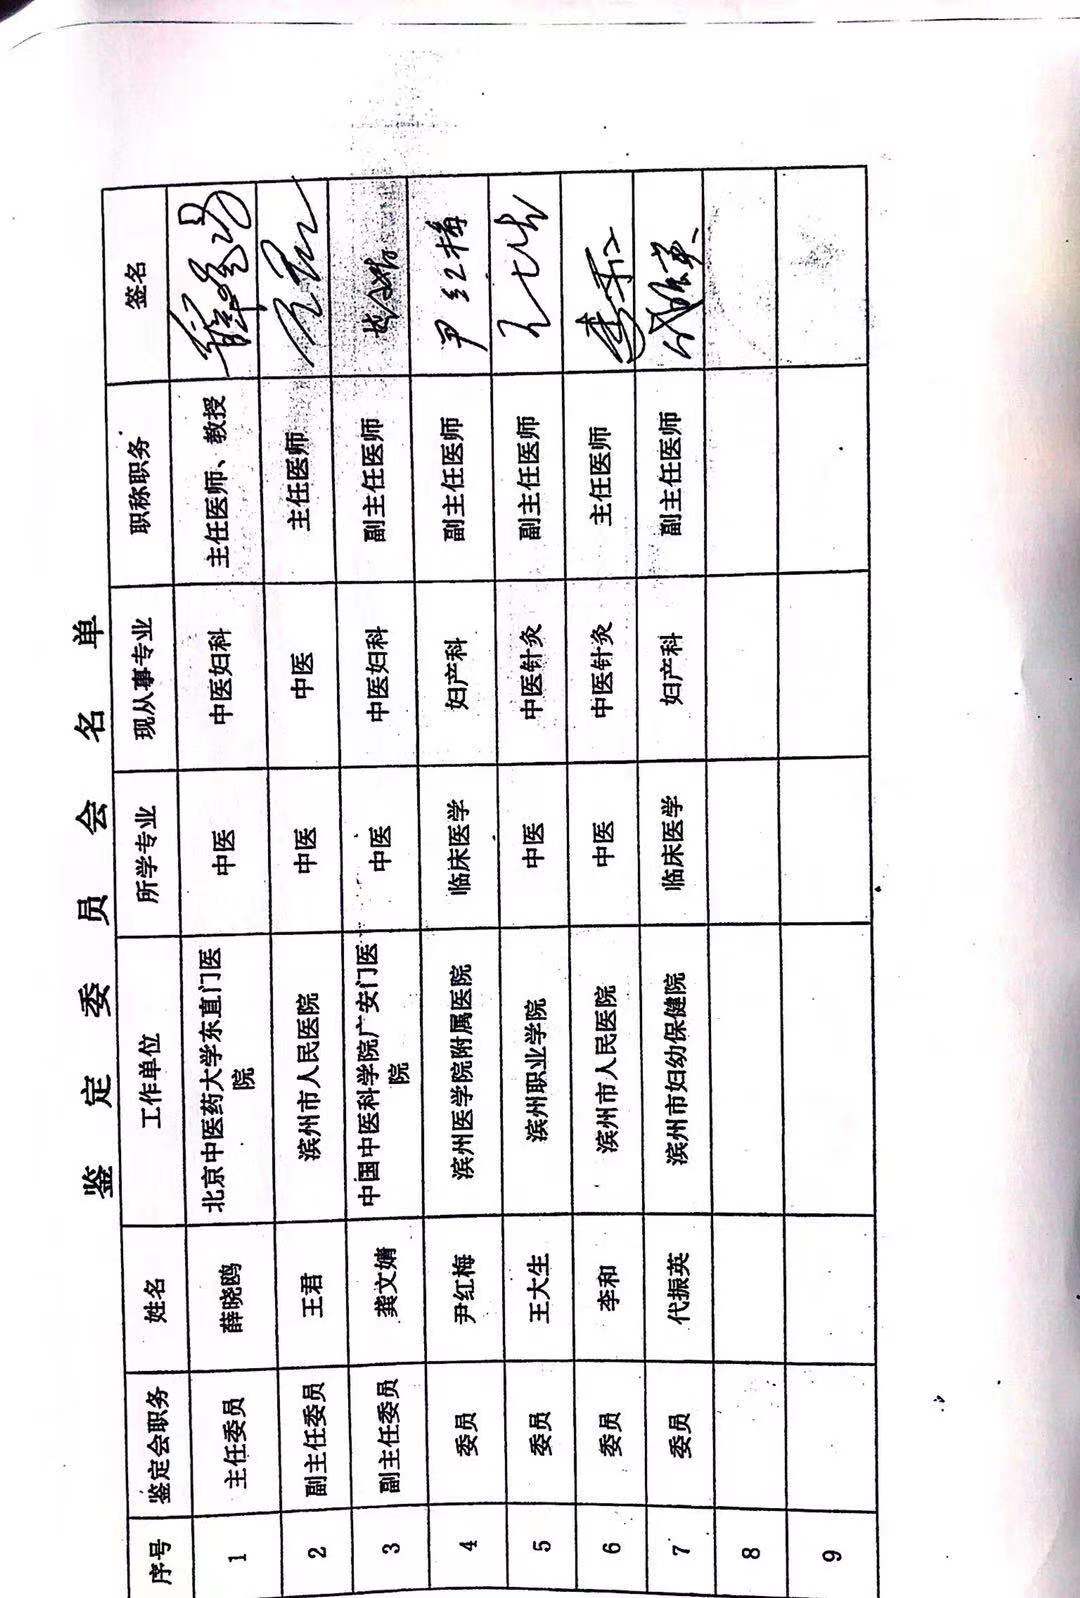 鉴定委员会名单
序号 鉴定会职务 姓名 工作单位 所学专业 现从事专业 职称职务 签名
1 主任委员 薛晓鸥 北京中医药大学东直门医院 中医 中医妇科 主任医师、教授
2 副主任委员 王君 滨州市人民医院 中医 中医 主任医师
3 副主任委员 龚文婧 中国中医科学院广安门医院 中医 中医妇科 副主任医师
4 委员 尹红梅 滨州医学院附属医院 临床医学 妇产科 副主任医师 尹红梅
5 委员 王大生 滨州职业学院 中医 中医针灸 副主任医师
6 委员 李和 滨州市人民医院 中医 中医针灸 主任医师 李和
7 委员 代振英 滨州市妇幼保健院 临床医学 妇产科 副主任医师 代振英
8
9